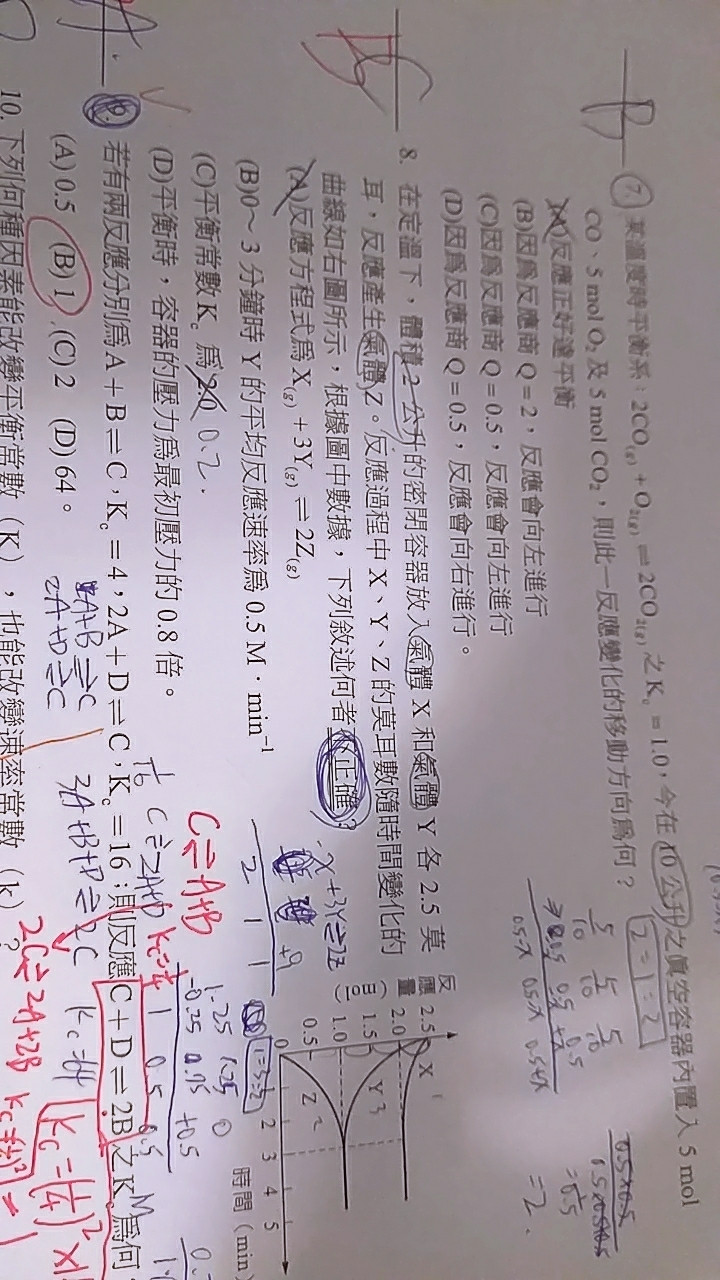 7. 某溫度時平衡系：2CO(g) + O2(g) ⇌ 2CO2(g) 之 Kc = 1.0，今在 10 公升之真空容器內置入 5 mol
CO、5 mol O2 及 5 mol CO2，則此一反應變化的移動方向為何？
(A)反應正好達平衡
(B)因為反應商 Q = 2，反應會向左進行
(C)因為反應商 Q = 0.5，反應會向左進行
(D)因為反應商 Q = 0.5，反應會向右進行。
2=1=2
8. 在定溫下，體積 2 公升的密閉容器放入氣體 X 和氣體 Y 各 2.5 莫
耳，反應產生氣體 Z。反應過程中 X、Y、Z 的莫耳數隨時間變化的
曲線如右圖所示，根據圖中數據，下列敘述何者不正確？
(A)反應方程式為 X(g) + 3Y(g) ⇌ 2Z(g)
(B)0～3 分鐘時 Y 的平均反應速率為 0.5 M‧min⁻¹
(C)平衡常數 Kc 為 20 0.2.
(D)平衡時，容器的壓力為最初壓力的 0.8 倍。
X+3Y⇌2Z
反應量(mol)
2.5
2.0
1.5
1.0
0.5
0
X
Y 3
Z 2
2 3 4 5
時間 (min)
1.25 1.25 0
1 0.5 0.5
9. 若有兩反應分別為 A + B ⇌ C，Kc = 4，2A + D ⇌ C，Kc = 16；則反應 C + D ⇌ 2B 之 Kc 為何
(A) 0.5 (B) 1 (C) 2 (D) 64。
A+B⇌C
2A+D⇌C
3A+B+D⇌2C
C⇌A+B
2C⇌2A+2B
10. 下列何種因素能改變平衡常數（K），也能改變速率常數（k）？